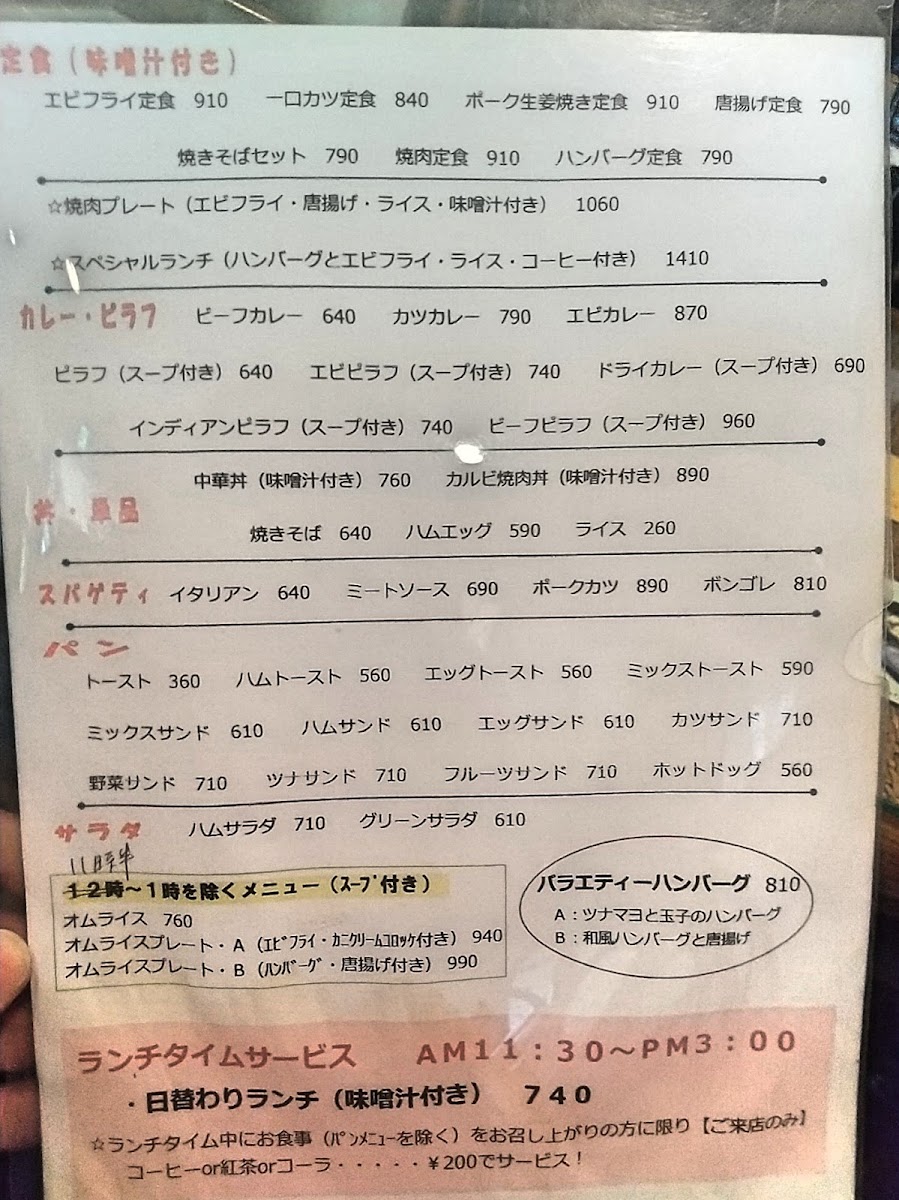 定食（味噌汁付き）
エビフライ定食 910 一口カツ定食 840 ポーク生姜焼き定食 910 唐揚げ定食 790
焼きそばセット 790 焼肉定食 910 ハンバーグ定食 790
☆焼肉プレート（エビフライ・唐揚げ・ライス・味噌汁付き） 1060
☆スペシャルランチ（ハンバーグとエビフライ・ライス・コーヒー付き） 1410
カレー・ピラフ ビーフカレー 640 カツカレー 790 エビカレー 870
ピラフ（スープ付き） 640 エビピラフ（スープ付き） 740 ドライカレー（スープ付き） 690
インディアンピラフ（スープ付き） 740 ビーフピラフ（スープ付き） 960
中華丼（味噌汁付き） 760 カルビ焼肉丼（味噌汁付き） 890
丼・単品
焼きそば 640 ハムエッグ 590 ライス 260
スパゲティ イタリアン 640 ミートソース 690 ポークカツ 890 ボンゴレ 810
パン
トースト 360 ハムトースト 560 エッグトースト 560 ミックストースト 590
ミックスサンド 610 ハムサンド 610 エッグサンド 610 カツサンド 710
野菜サンド 710 ツナサンド 710 フルーツサンド 710 ホットドッグ 560
サラダ ハムサラダ 710 グリーンサラダ 610
11時半
12時～1時を除くメニュー（ｽｰﾌﾟ付き）
オムライス 760
オムライスプレート・A（ｴﾋﾞﾌﾗｲ・ｶﾆｸﾘｰﾑｺﾛｯｹ付き） 940
オムライスプレート・B（ﾊﾝﾊﾞｰｸﾞ・唐揚げ付き） 990
バラエティーハンバーグ 810
A：ツナマヨと玉子のハンバーグ
B：和風ハンバーグと唐揚げ
ランチタイムサービス AM11：30～PM3：00
・日替わりランチ（味噌汁付き） 740
☆ランチタイム中にお食事（ﾊﾟﾝﾒﾆｭｰを除く）をお召し上がりの方に限り【ご来店のみ】
コーヒーor紅茶orコーラ・・・・・￥200でサービス！